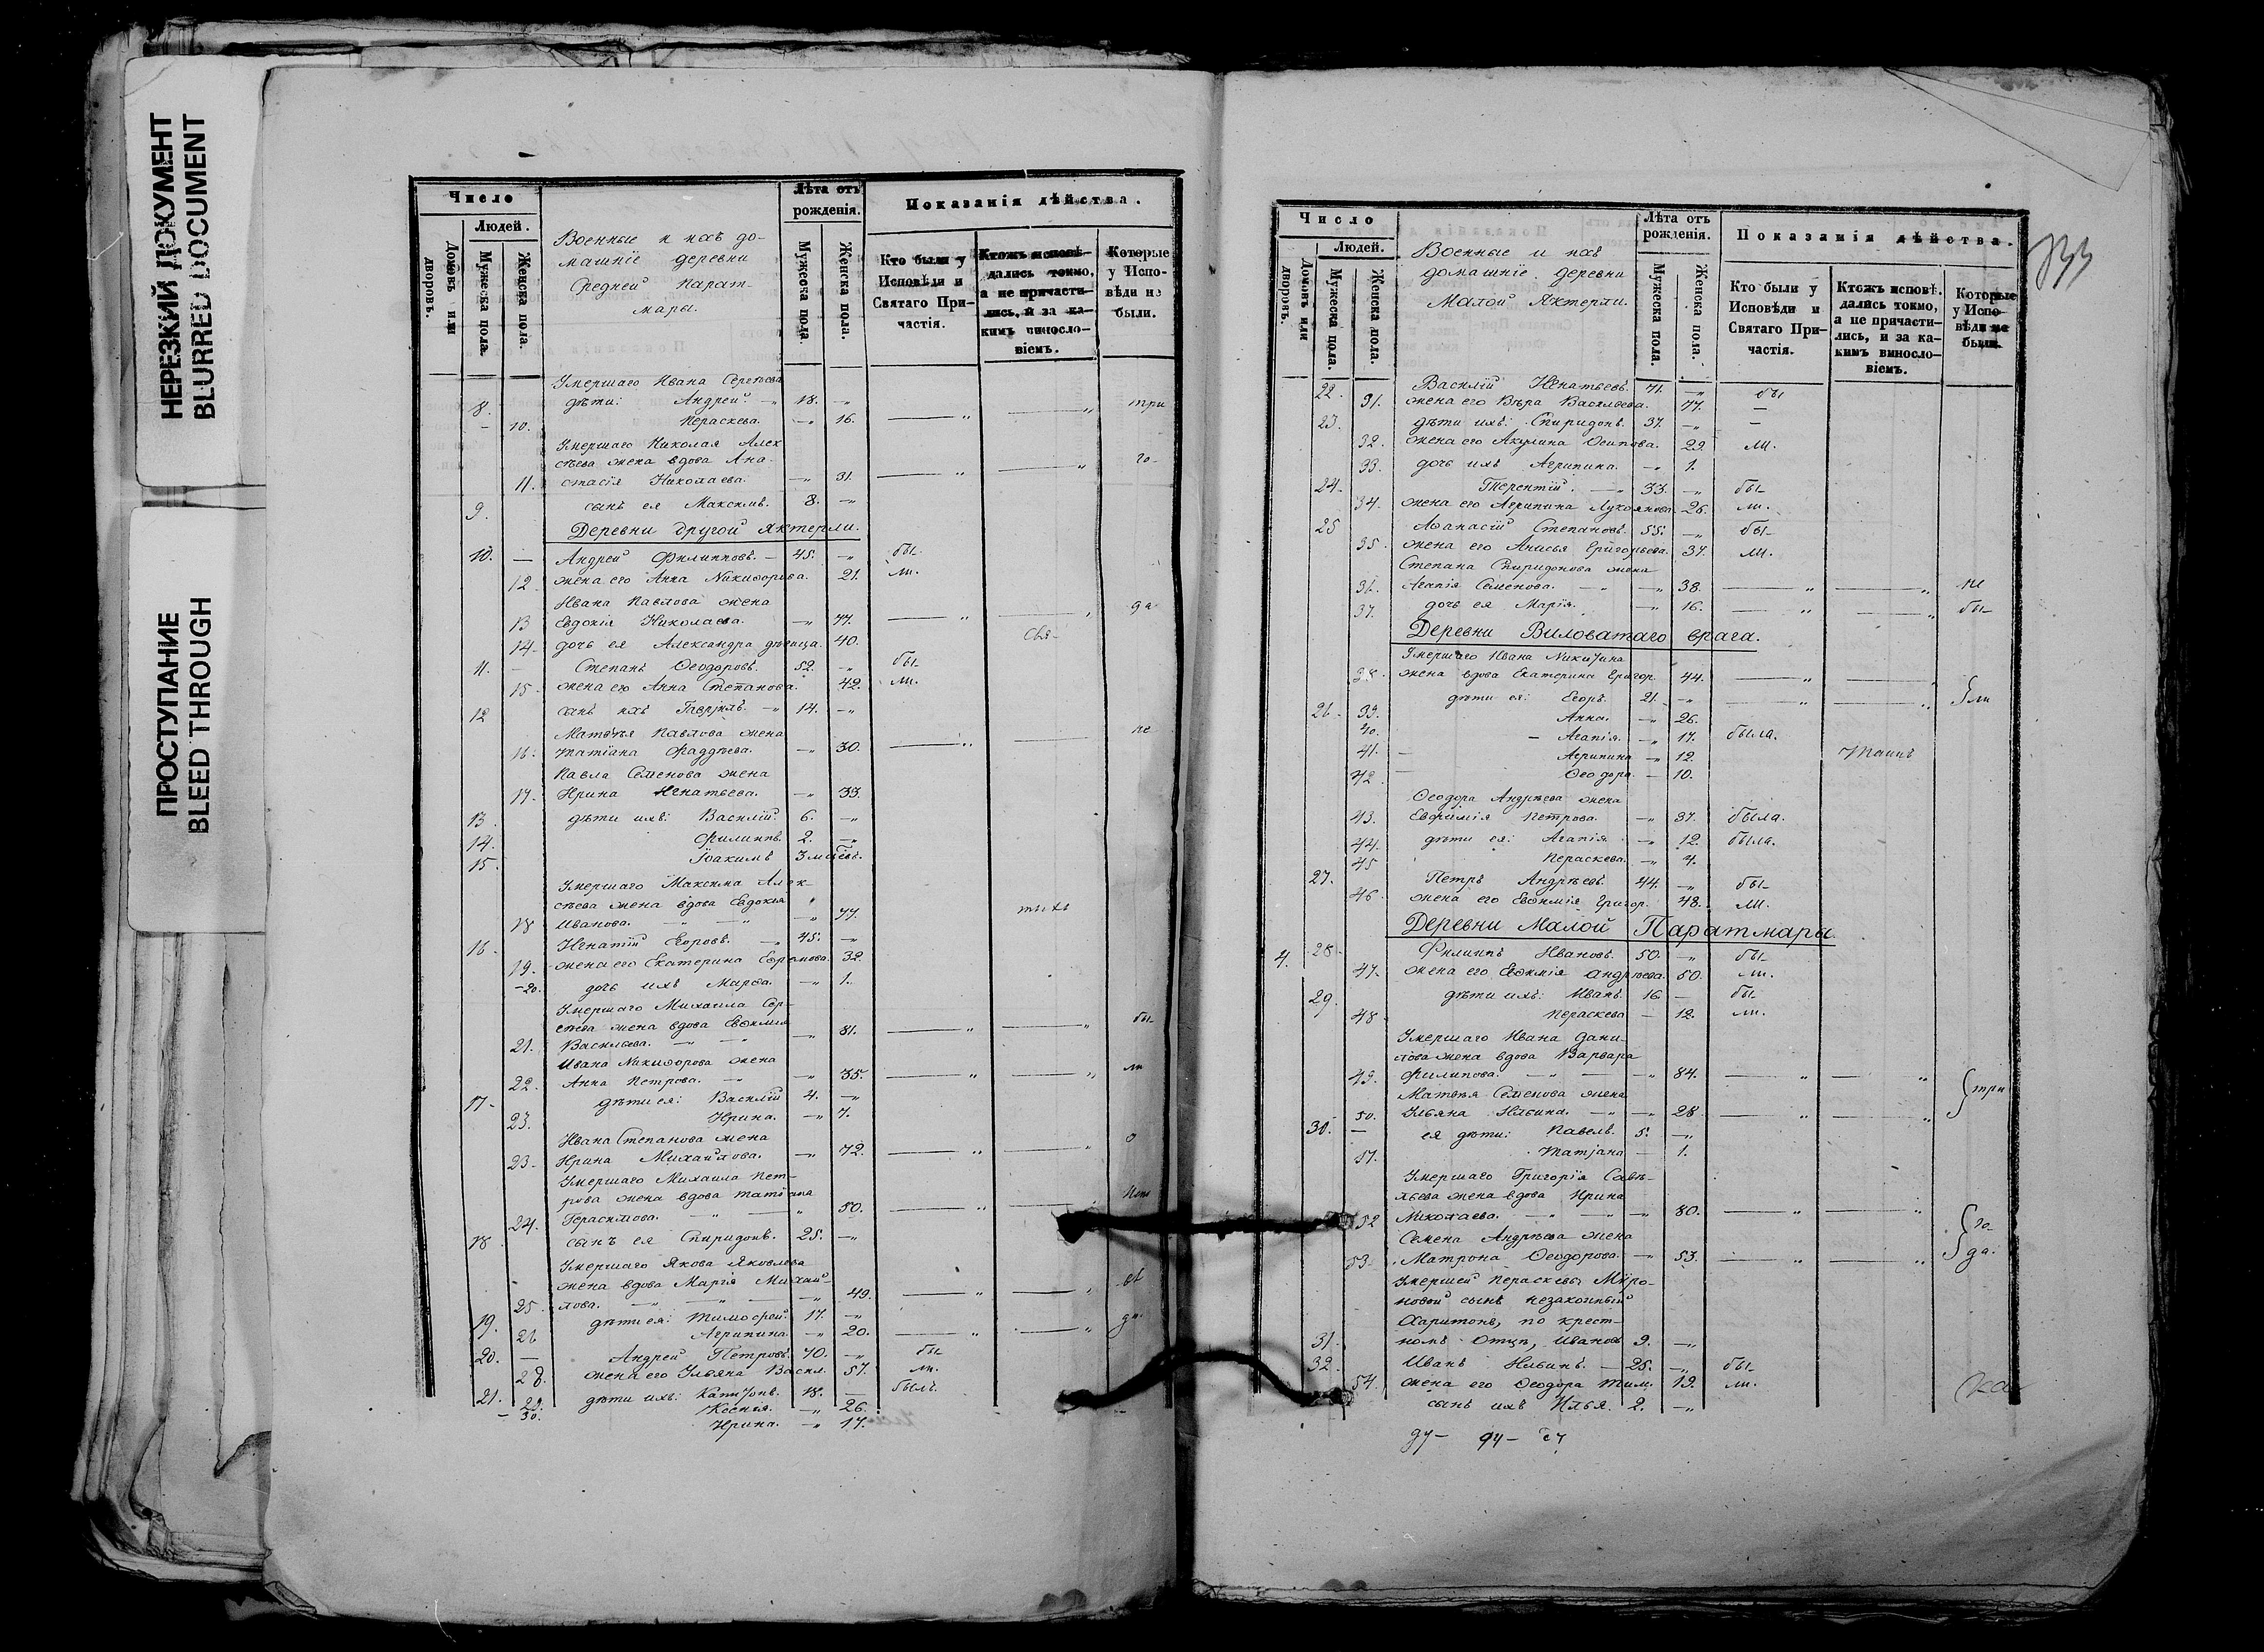 НЕРЕЗКИЙ ДОКУМЕНТ
BLURRED DOCUMENT
ПРОСТУПАНИЕ
BLEED THROUGH
Число
Людей.
Домовъ или дворовъ.
Мужеска пола.
Женска пола.
Военные и ихъ до-
машніе деревни
Средней Парат-
мары.
Лѣта отъ рожденія.
Мужеска пола.
Женска пола.
Показанія дѣйства.
Кто были у Исповѣди и Святаго Причастія.
Ктожъ исповѣдались токмо, а не причастились, и за какимъ винословіемъ.
Которые у Исповѣди не были.
Умершаго Ивана Сергѣева
8. дѣти: Андрей. 18. три
10. Параскева. 16.
Умершаго Николая Алек
сѣева жена вдова Ана- го-
11. стасія Николаева. 31.
9. сынъ ея Максимъ. 8.
Деревни другой Яктерли.
10. — Андрей Филипповъ. — 45. бы-
12 жена его Анна Никифорова. 21. ли.
Ивана Павлова жена да
13 Евдокія Николаева. 77.
14. дочь ея Александра дѣвица. 40. свя-
11. — Степанъ Ѳеодоровъ. 52. бы-
15. жена его Анна Степанова. 42. ли.
12 сынъ ихъ Гавріилъ. 14.
Матвѣя Павлова жена не
16. Татіана Фаддѣева. 30.
Павла Семенова жена
17. Ирина Игнатьева. 33.
13. дѣти ихъ: Василій. 6.
14. Филиппъ. 2.
15. Іоакимъ 3 мѣсяц.
Умершаго Максима Алек-
сѣева жена вдова Евдокія
18 Иванова. 77. тыхъ
16. Игнатій Егоровъ. 45.
19. жена его Екатерина Ефремова. 32.
20. дочь ихъ Марѳа. 1.
Умершаго Михаила Сер-
гѣева жена вдова Евѳимія бы-
21. Васильева. 81.
Ивана Никифорова жена
22. Анна Петрова. 35. ли
17. дѣти ея: Василій 4.
23. Ирина. 7.
Ивана Степанова жена о
23. Ирина Михайлова. 72.
Умершаго Михаила Пет-
рова жена вдова Татіана
24. Герасимова. 50.
18 сынъ ея Спиридонъ. 25.
Умершаго Якова Яковлева
жена вдова Марія Михай-
25. лова. 49.
19. дѣти ея: Тимофей. 17.
26 Агрипина. 20.
20. — Андрей Петровъ. 70. бы-
28. жена его Ульяна Васил. 57. ли.
21. дѣти ихъ: Капитонъ. 18. — былъ.
29. Ксенія. 26.
30. Ирина. 17.
133
Число
Людей.
Домовъ или дворовъ.
Мужеска пола.
Женска пола.
Военные и ихъ
домашніе деревни
Малой Яктерли.
Лѣта отъ рожденія.
Мужеска пола.
Женска пола.
Показанія дѣйства.
Кто были у Исповѣди и Святаго Причастія.
Ктожъ исповѣдались токмо, а не причастились, и за какимъ винословіемъ.
Которые у Исповѣди не были.
22. Василій Игнатьевъ. 71. бы
31. жена его Вѣра Васильева. 77. —
23. дѣти ихъ: Спиридонъ. 37. —
32. жена его Акулина Осипова. 29. ли.
33. дочь ихъ Агрипина. 1.
24. Терентій. 33. бы-
34. жена его Агрипина Лукоянова. 26. ли.
25 Аѳанасій Степановъ. 55. бы-
35. жена его Анисья Григорьева. 37. ли.
Степана Спиридонова жена
36. Агапія Семенова. 38. не
37. дочь ея Марія. 16. бы-
Деревни Виловатаго врага.
Умершаго Ивана Никитина
38. жена вдова Екатерина Григор. 44.
26. дѣти ея: Егоръ. 21. ли
39. Анна. 26.
40. Агапія. 17. была.
41. Агрипина 12. Тоинъ
42. Ѳеодора. 10.
Ѳеодора Андрѣева жена
43. Евфимія Петрова. 37. была.
44. дѣти ея: Агапія. 12. была.
45 Параскева. 7.
27. Петръ Андрѣевъ. 44. бы-
46. жена его Евѳимія Григор. 48. ли.
Деревни Малой Паратмары.
4. 28. Филиппъ Ивановъ. 50. бы-
47. жена его Евѳимія Андрѣева. 50. ли.
29. дѣти ихъ: Иванъ. 16. — бы-
48. Параскева — 12. ли.
Умершаго Ивана Дани-
лова жена вдова Варвара
49. Филипова. 84.
Матвѣя Семенова жена три
50. Ульяна Ильина. 28.
30. — ея дѣти: Павелъ. 5.
51. Татіана — 1.
Умершаго Григорія Савѣ-
льева жена вдова Ирина
52 Николаева. 80. го-
Семена Андрѣева жена
53. Матрона Ѳеодорова. 53. да.
Умершей Параскевы Міро-
новой сынъ незаконный
Харитонъ, по крест-
31. номъ отцѣ, Ивановъ 9.
32. Иванъ Ильинъ. — 25. бы-
54. жена его Ѳеодора Тим. 19. ли.
сынъ ихъ Илья. 2.